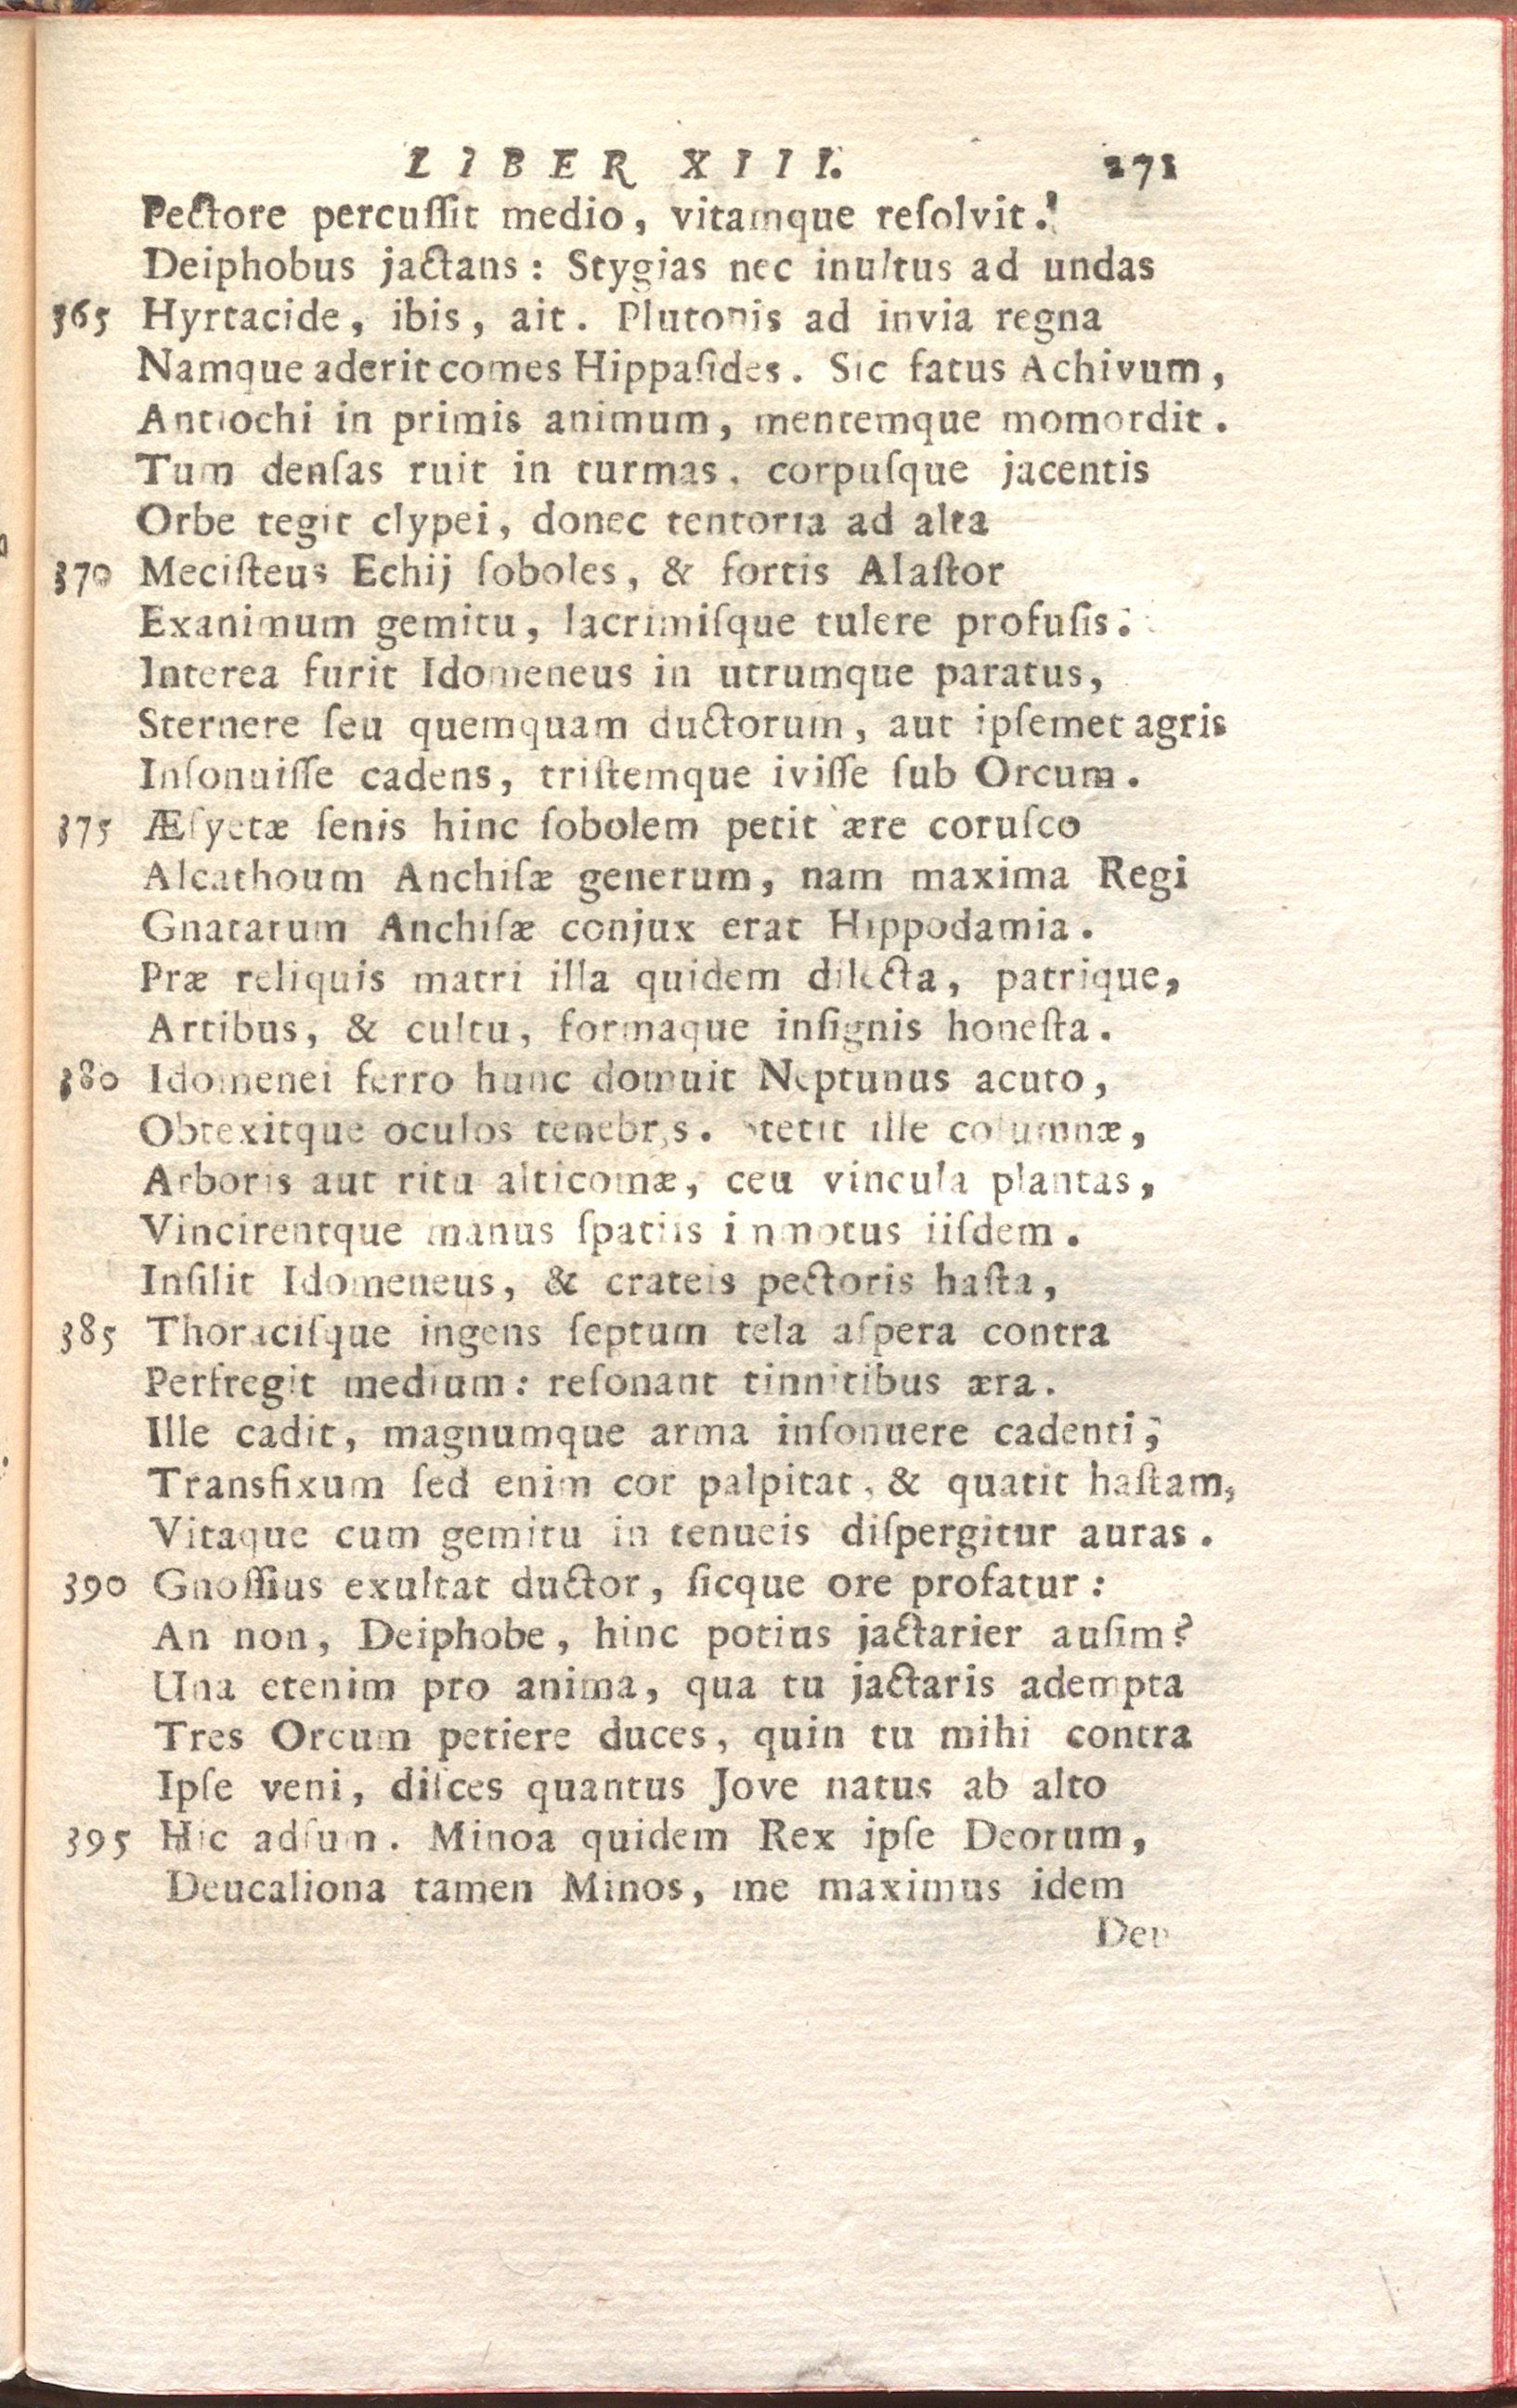 LIBER XIII. 271
Pectore percuſſit medio, vitamque reſolvit.
Deiphobus jactans: Stygias nec inultus ad undas
365 Hyrtacide, ibis, ait. Plutonis ad invia regna
Namque aderit comes Hippaſides. Sic fatus Achivum,
Antiochi in primis animum, mentemque momordit.
Tum denſas ruit in turmas, corpuſque jacentis
Orbe tegit clypei, donec tentoria ad alta
370 Meciſteus Echij ſoboles, & fortis Alaſtor
Exanimum gemitu, lacrimiſque tulere profuſis.
Interea furit Idomeneus in utrumque paratus,
Sternere ſeu quemquam ductorum, aut ipſemet agris
Inſonuiſſe cadens, triſtemque iviſſe ſub Orcum.
375 Æſyetæ ſenis hinc ſobolem petit ære coruſco
Alcathoum Anchiſæ generum, nam maxima Regi
Gnatarum Anchiſæ conjux erat Hippodamia.
Præ reliquis matri illa quidem dilecta, patrique,
Artibus, & cultu, formaque inſignis honeſta.
380 Idomenei ferro hunc domuit Neptunus acuto,
Obtexitque oculos tenebris. Stetit ille columnæ,
Arboris aut ritu alticomæ, ceu vincula plantas,
Vincirentque manus ſpatiis inmotus iiſdem.
Inſilit Idomeneus, & crateis pectoris haſta,
385 Thoraciſque ingens ſeptum tela aſpera contra
Perfregit medium: reſonant tinnitibus æra.
Ille cadit, magnumque arma inſonuere cadenti;
Transfixum ſed enim cor palpitat, & quatit haſtam,
Vitaque cum gemitu in tenueis diſpergitur auras.
390 Gnoſſius exultat ductor, ſicque ore profatur:
An non, Deiphobe, hinc potius jactarier auſim?
Una etenim pro anima, qua tu jactaris adempta
Tres Orcum petiere duces, quin tu mihi contra
Ipſe veni, diſces quantus Jove natus ab alto
395 Hic adſum. Minoa quidem Rex ipſe Deorum,
Deucaliona tamen Minos, me maximus idem
Deu